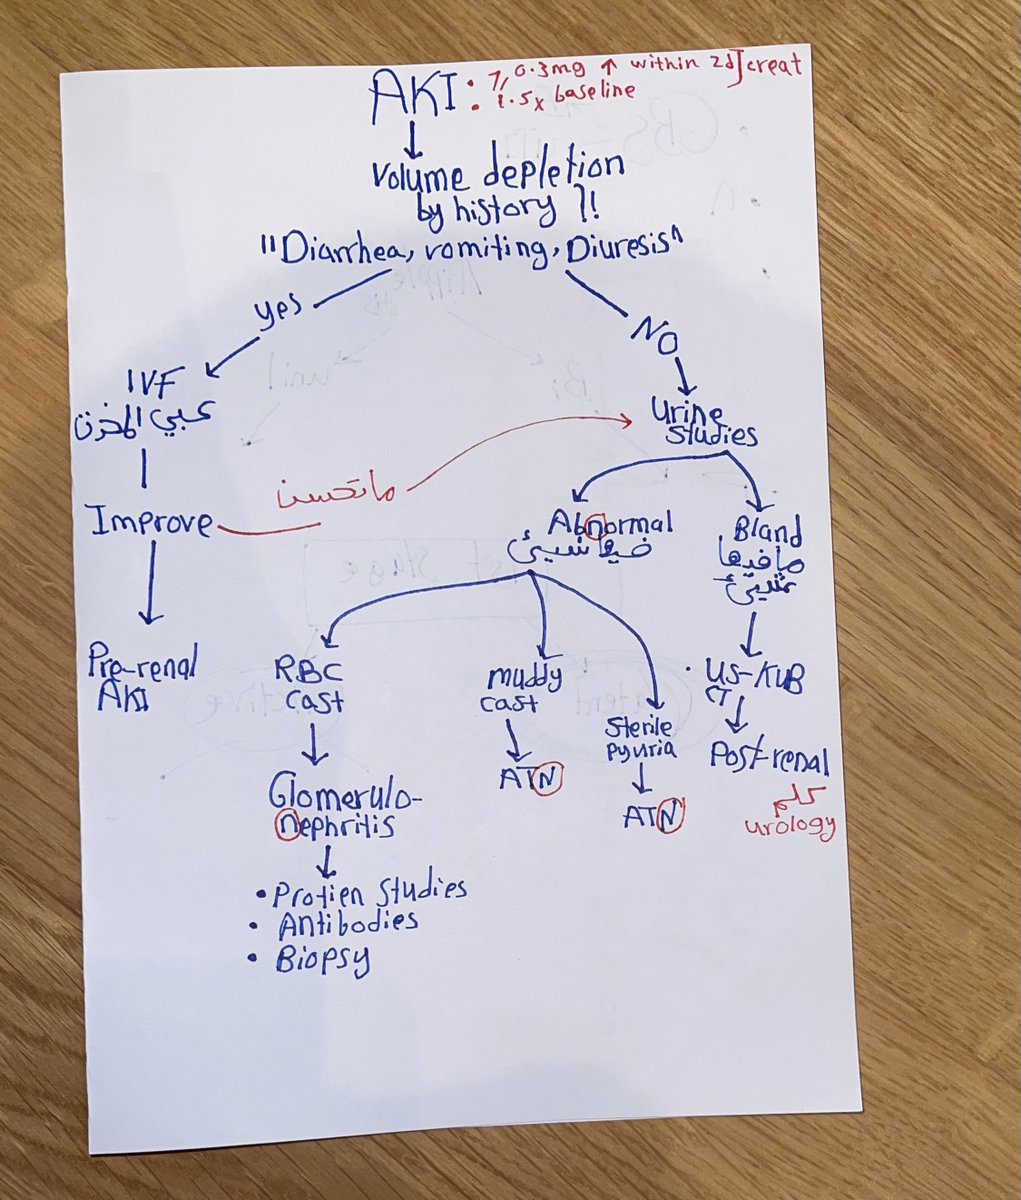 AKI : ≥ 0.3mg ↑ within 2d] creat
: 1.5x baseline
Volume depletion
by history ?!
"Diarrhea, vomiting, Diuresis"
yes
NO
IVF
عبي المخزن
Urine
Studies
ماتحسن
Improve
Abnormal
فيها شيئ
Bland
مافيها
شيئ
Pre-renal
AKI
RBC
cast
muddy
cast
Sterile
pyuria
US-KUB
CT
Post-renal
كلم
urology
ATN
ATN
Glomerulo-
nephritis
• Protien Studies
• Antibodies
• Biopsy